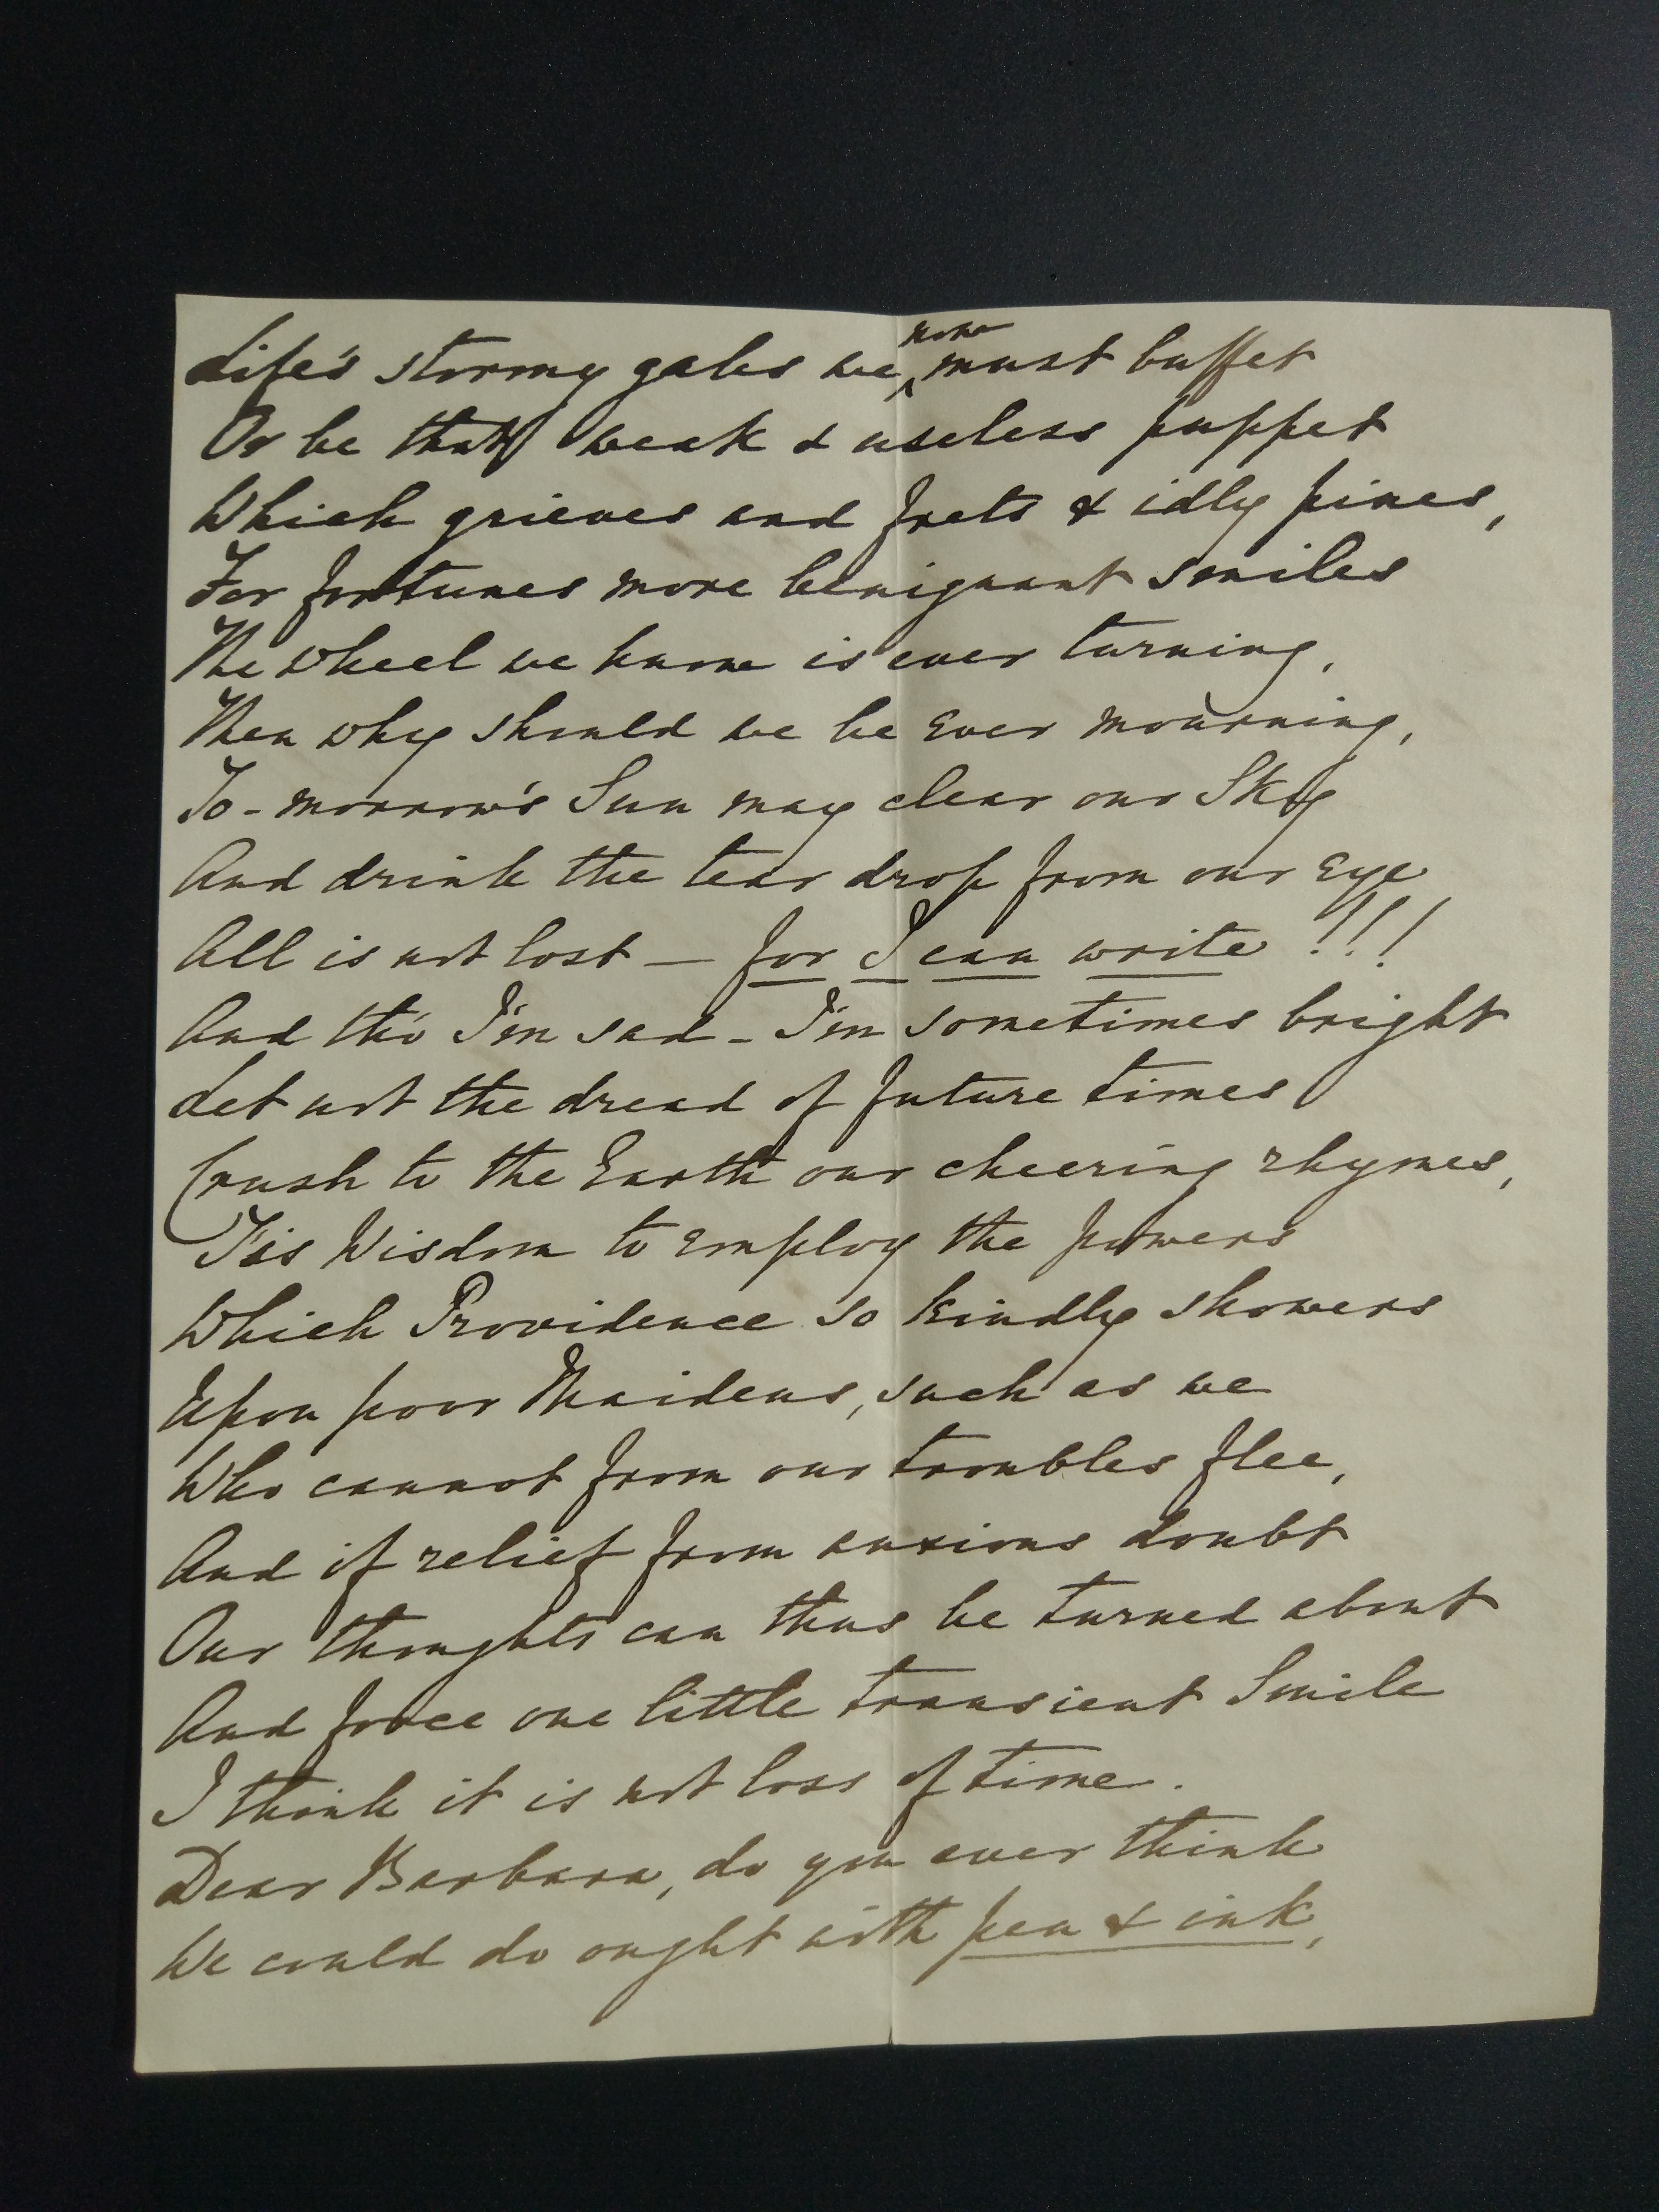 Life's stormy gales we now must buffet
Or be that weak & useless puppet
Which grieves and frets & idly pines,
For fortunes more benignant smiles
The wheel we know is ever turning,
Then why should we be ever mourning,
To-morrow's Sun may clear our Sky
And drink the tear drop from our eye
All is not lost — for I can write !!!
And tho' I'm sad - I'm sometimes bright
Let not the dread of future times
Crush to the Earth our cheering rhymes,
T'is Wisdom to employ the powers
Which Providence so kindly showers
Upon poor Maidens, such as we
Who cannot from our troubles flee,
And if relief from anxious doubt
Our thoughts can thus be turned about
And force one little transient Smile
I think it is not loss of time.
Dear Barbara, do you ever think
We could do ought with pen & ink,